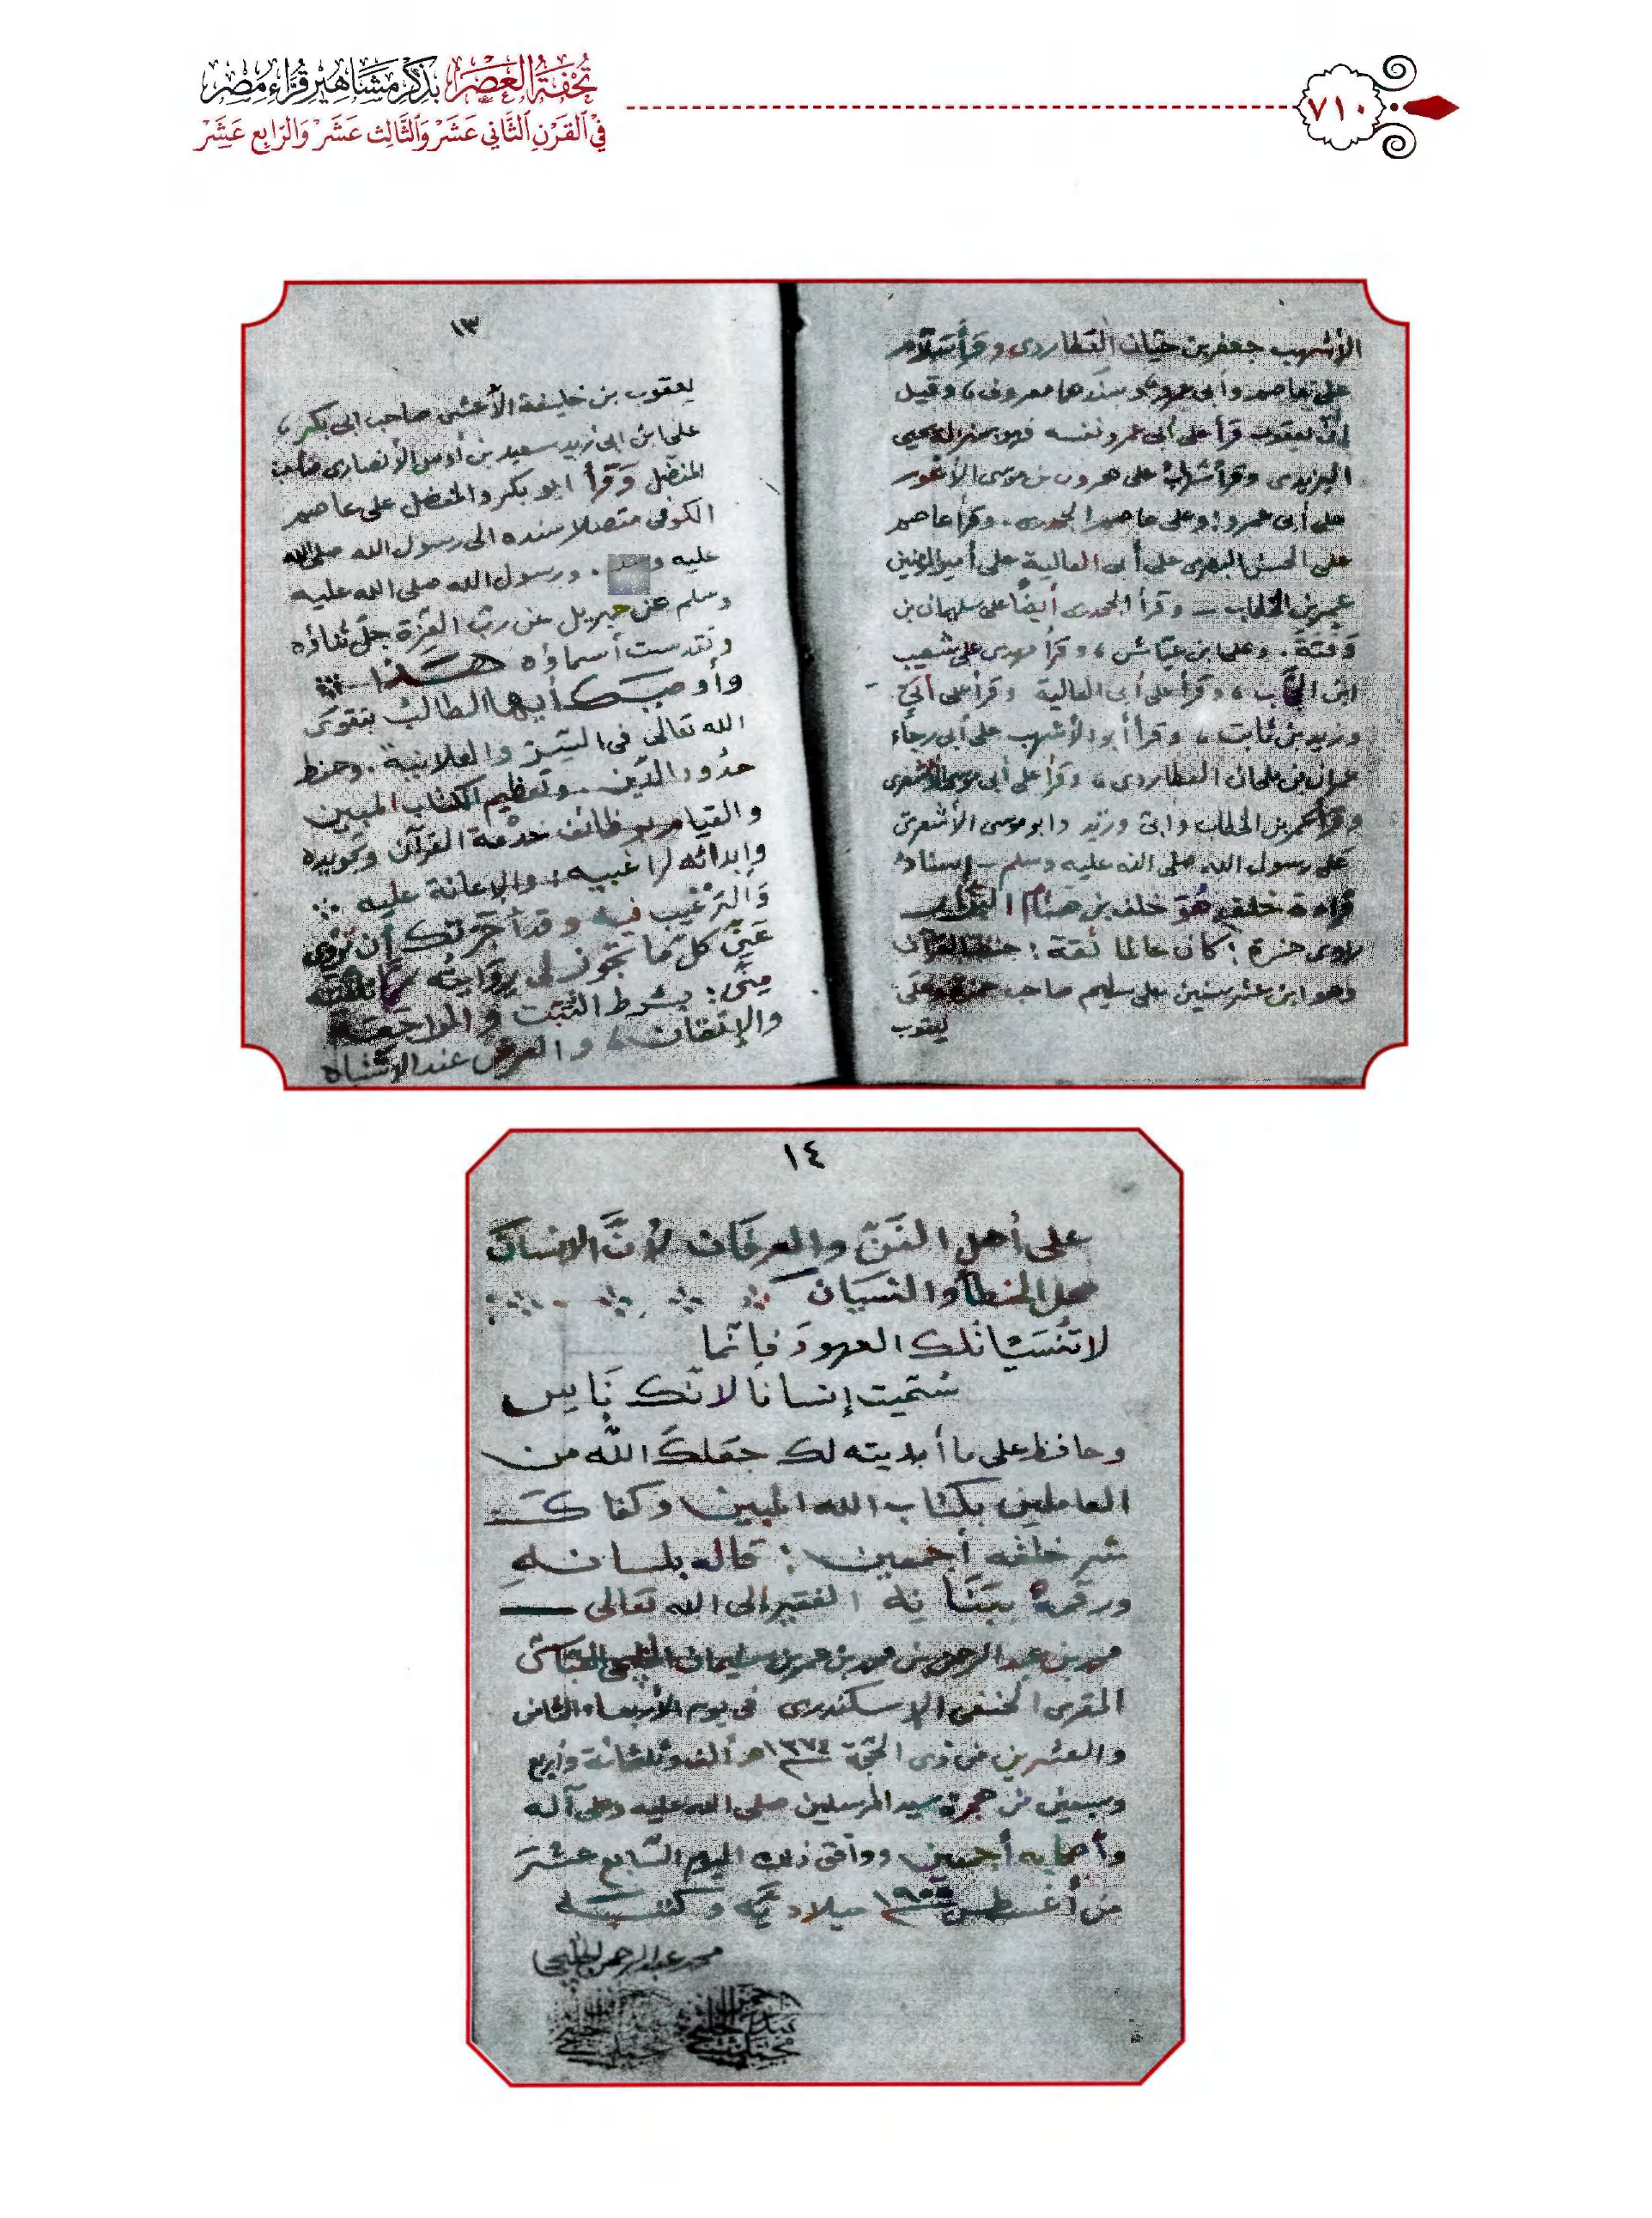 تُحْفَةُ العَصْرِ بِذِكْرِ مَشَاهِيرِ قُرَّاءِ مِصْرَ
فِي القَرْنِ الثَّانِي عَشَرَ وَالثَّالِث عَشَرَ وَالرَّابِع عَشَرَ
٧١٠
الأشهب جعفر بن حيان العطاردى وقرأ سلام
على عاصم وأبى عمرو بسندهما معروف، وقيل
إن يعقوب قرأ على أبى عمرو نفسه فهو بمنزلة يحيى
اليزيدى وقرأ شهاب على هرون بن موسى الأعور
على أبى عمرو، وعلى عاصم الجحدرى. وقرأ عاصم
على الحسن البصرى على أبى العالية على أمير المؤمنين
عمر بن الخطاب — وقرأ الجحدرى أيضًا على سليمان بن
قَتَّة. وعلى ابن عباس، وقرأ مهدى على شعيب
ابن الحبحاب، وقرأ على أبى العالية وقرأ على أبىّ
وزيد بن ثابت، وقرأ أبو الأشهب على أبى رجاء
عمران بن ملحان العطاردى، وقرأ على أبى موسى الأشعرى
وقرأ عمر بن الخطاب وأبىّ وزيد وأبو موسى الأشعرى
على رسول الله صلى الله عليه وسلم — إسناد
قراءة خلف هُوَ خلف بن هشام البزار
راوى حمزة؛ كان عالما ثقة؛ حفظ القرآن
وهو ابن عشر سنين على سليم صاحب حمزة وعلى
يعقوب
١٣
يعقوب بن خليفة الأعشى صاحب ابى بكر،
على ابن ابى زيد سعيد بن أوس الأنصارى صاحب
المفضل وَقَرأ ابو بكر والمفضل على عاصم
الكوفى متصلا سنده الى رسول الله صلى الله
عليه و . ورسول الله صلى الله عليه
وسلم عن جبريل عن ربّ العِزّة جلّ ثناؤه
وتقدست أسماؤه هَذا
وأوصيك أيها الطالب بتقوى
الله تعالى فى السّر والعلانية. وحفظ
حدُود الدّين. وتعظيم الكتاب المبين
والقيام بوظائف خدمة القرآن وتجويده
وإبدائه لراغبيه. والإعانة عليه
وَالترغيب فيه وقد أجزتك أن تروى
عنّى كل مَا تجوز لى روايته
مِنّى؛ بشرط التثبت والمراجعة
والإتقان، والعرض عند الاشتباه
١٤
على أهل الفَنّ والعرفان لأنَّ الإنسان
محل الخطأ والنسيان
لا تَنْسَيَنْ تلك العهودَ فإنّما
سُمّيت إنسانًا لانّك نَاسِ
وحافظ على ما أبديته لك جعَلكَ الله من
العاملين بكتاب الله المبين وكفاكَ
شر خلقه أجمعين؛ قاله بلسانهِ
ورقمهُ ببَنَانِه الفقير إلى الله تعالى
محمد بن عبد الرحمن بن محمد بن عمر بن سليمان الخليجى العباسى
المقرى الحنفى الإسكندرى فى يوم الأربعاء الثامن
والعشرين من ذى الحجّة ١٣٧٤ هـ ألف وثلثمائة وأربع
وسبعين من هجرة سيد المرسلين صلى الله عليه وعلى آله
وأصحابه أجمعين. ووافق ذلك اليوم السّابع عشرَ
من أغسطس ١٩٥٥ ميلاديّة وكتبه
محمد عبد الرحمن الخليجى